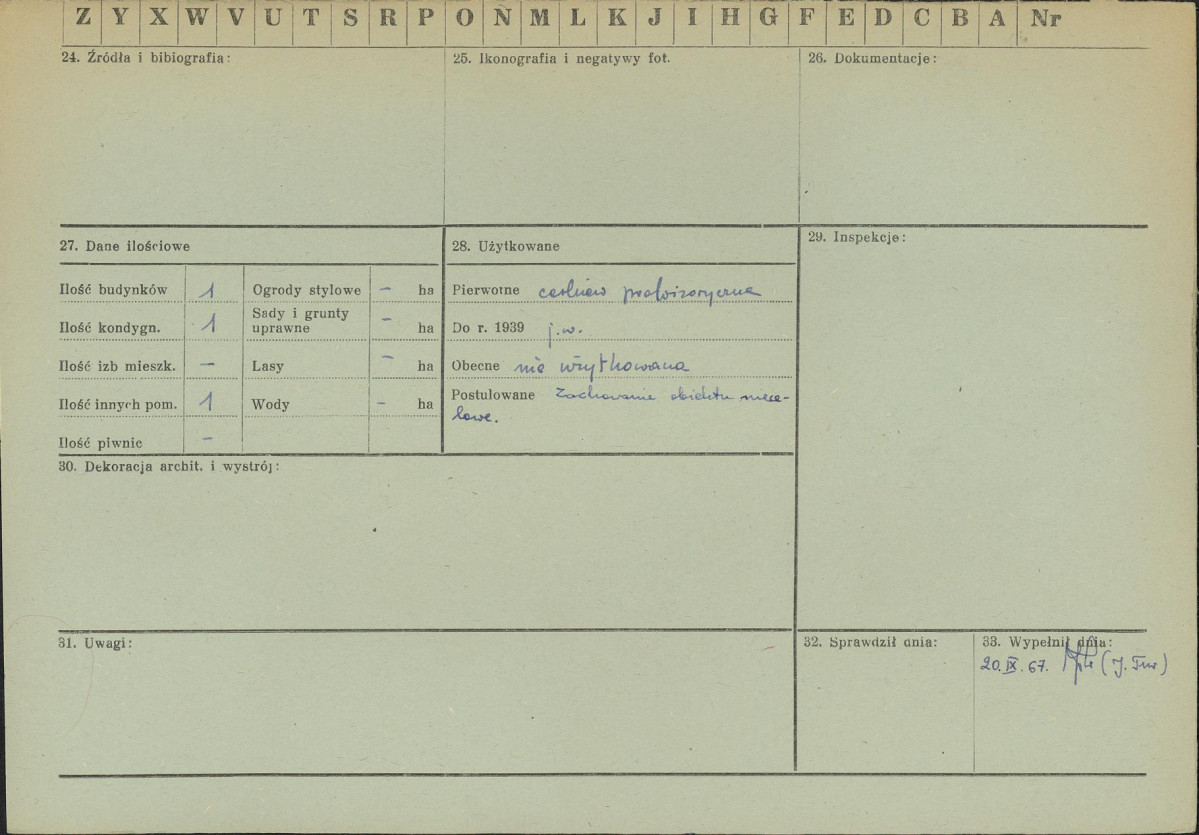 Z Y X W V U T S R P O N M L K J I H G F E D C B A Nr
24. Źródła i bibiografia:
25. Ikonografia i negatywy fot.
26. Dokumentacje:
27. Dane ilościowe
Ilość budynków 1 Ogrody stylowe – ha
Ilość kondygn. 1 Sady i grunty uprawne – ha
Ilość izb mieszk. – Lasy – ha
Ilość innych pom. 1 Wody – ha
Ilość piwnic –
28. Użytkowane
Pierwotne cerkiew prowizoryczna
Do r. 1939 j.w.
Obecne nie użytkowana
Postulowane Zachowanie obiektu niece-
lowe.
29. Inspekcje:
30. Dekoracja archit. i wystrój:
31. Uwagi:
32. Sprawdził dnia:
33. Wypełnił dnia:
20.IX.67.